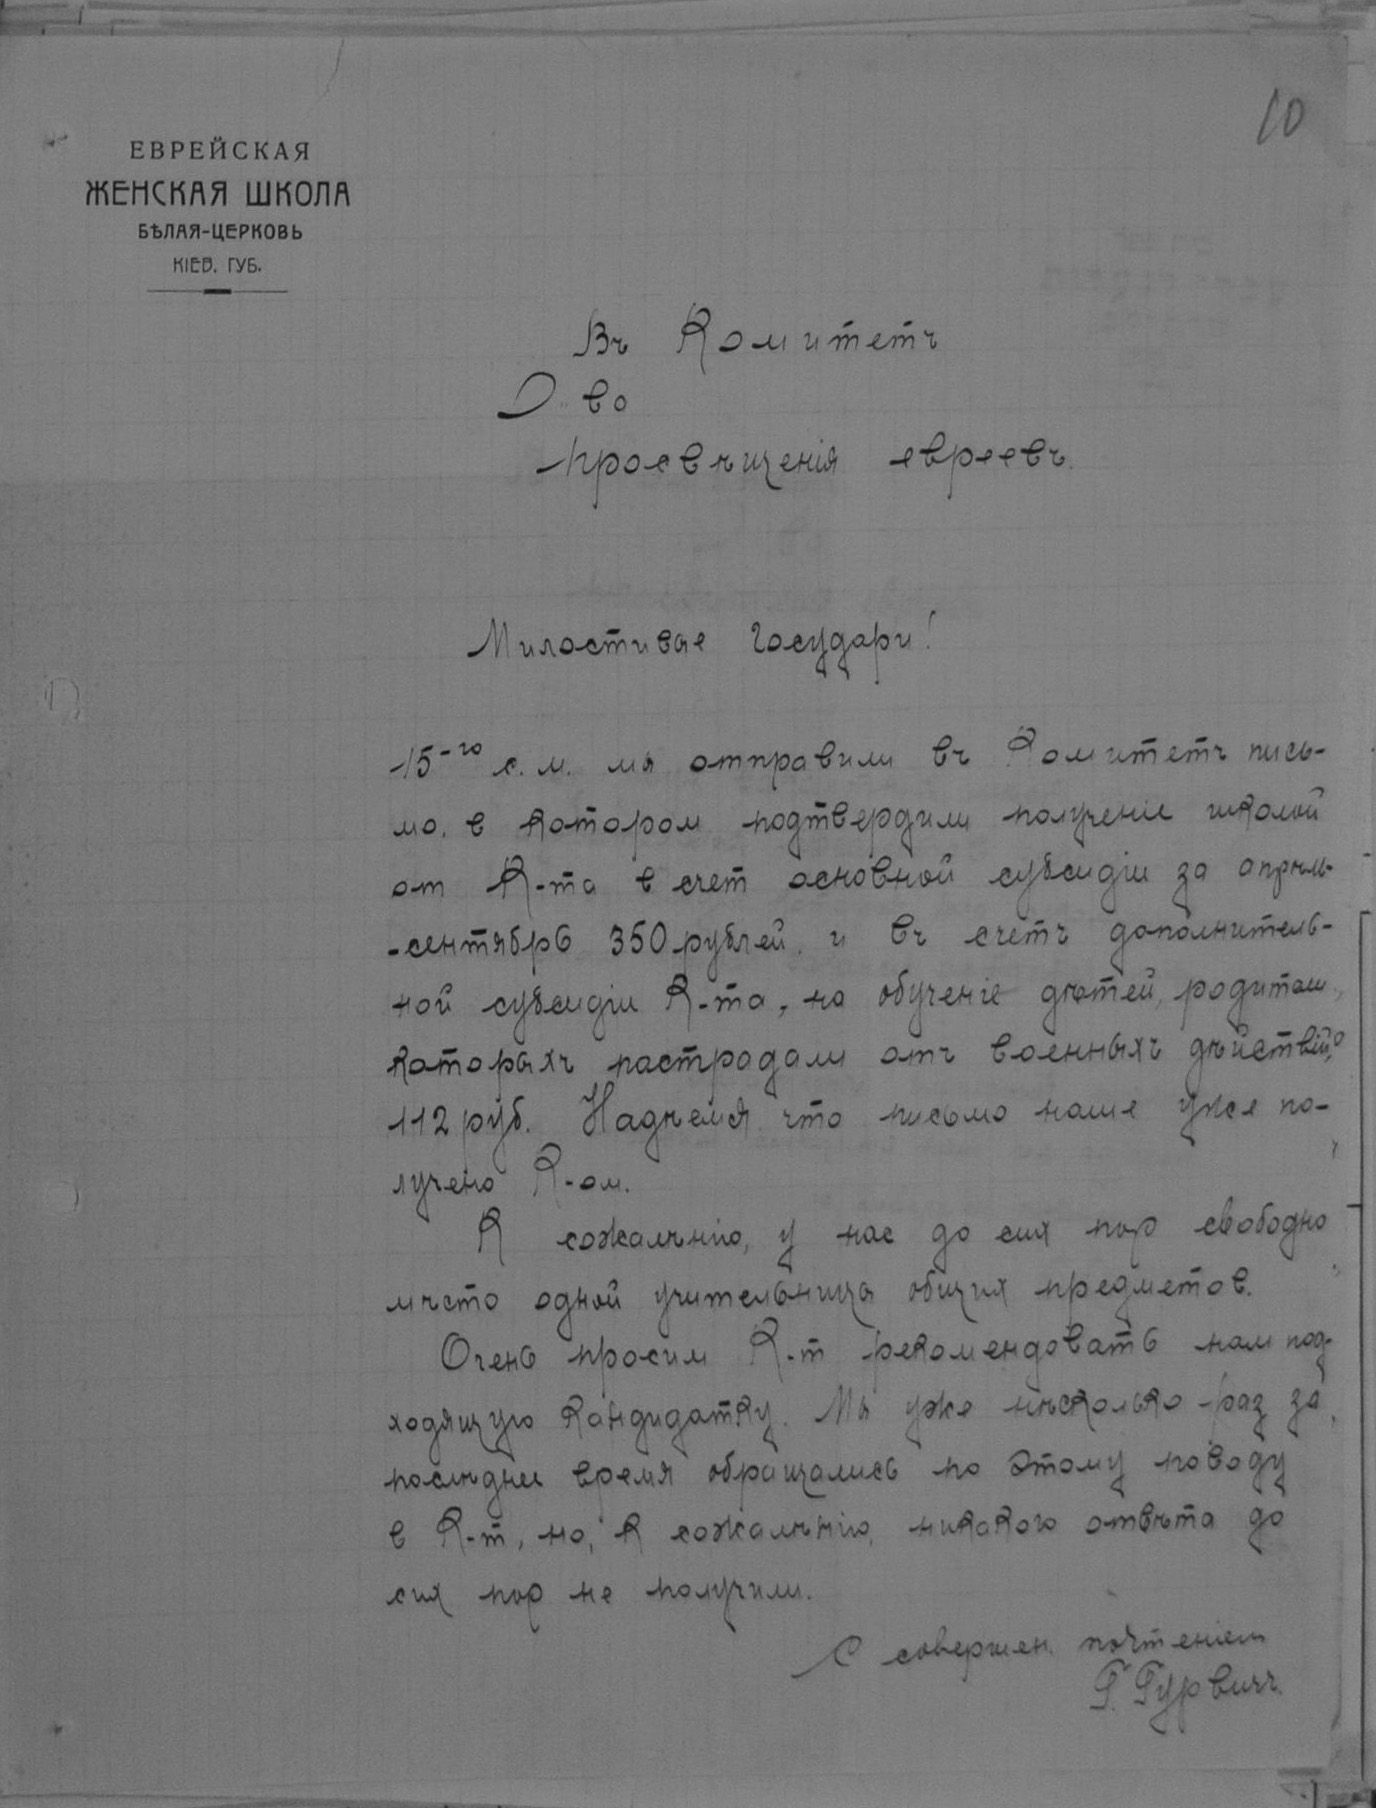 10
ЕВРЕЙСКАЯ
ЖЕНСКАЯ ШКОЛА
БѢЛАЯ-ЦЕРКОВЬ
КІЕВ. ГУБ.
Въ Комитетъ
О-во
просвѣщенія евреевъ.
Милостивые государи!
15-го с. м. мы отправили въ Комитетъ пись-
мо, в котором подтвердили полученіе школой
от К-та в счет основной субсидіи за апрѣль-
-сентябрь 350 рублей и въ счетъ дополнитель-
ной субсидіи К-та, на обученіе дѣтей, родители
которыхъ пострадали отъ военныхъ дѣйствій,
112 руб. Надѣемся что письмо наше уже по-
лучено К-ом.
К сожалѣнію, у нас до сих пор свободно
мѣсто одной учительницы общих предметов.
Очень просим К-т рекомендовать нам под-
ходящую кандидатку. Мы уже нѣсколько раз за
послѣднее время обращались по этому поводу
в К-т, но, к сожалѣнію, никакого отвѣта до
сих пор не получили.
С совершен. почтеніем
Г. Гурвичъ.